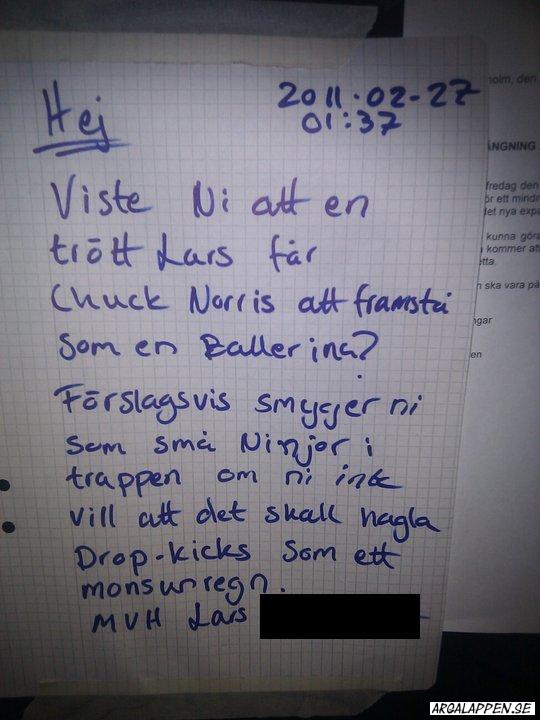 Hej
2011-02-27
01:37
Viste Ni att en
trött Lars får
Chuck Norris att framstå
som en Ballerina?
Förslagsvis smygger ni
som små Ninjor i
trappen om ni inte
vill att det skall hagla
Drop-kicks som ett
monsunregn.
MVH Lars
holm, den
ÄNGNING
fredag den
ör ett mindr
det nya expe
kunna göra
kommer att
etta.
ska vara på
ngar
en
ARGALAPPEN.SE